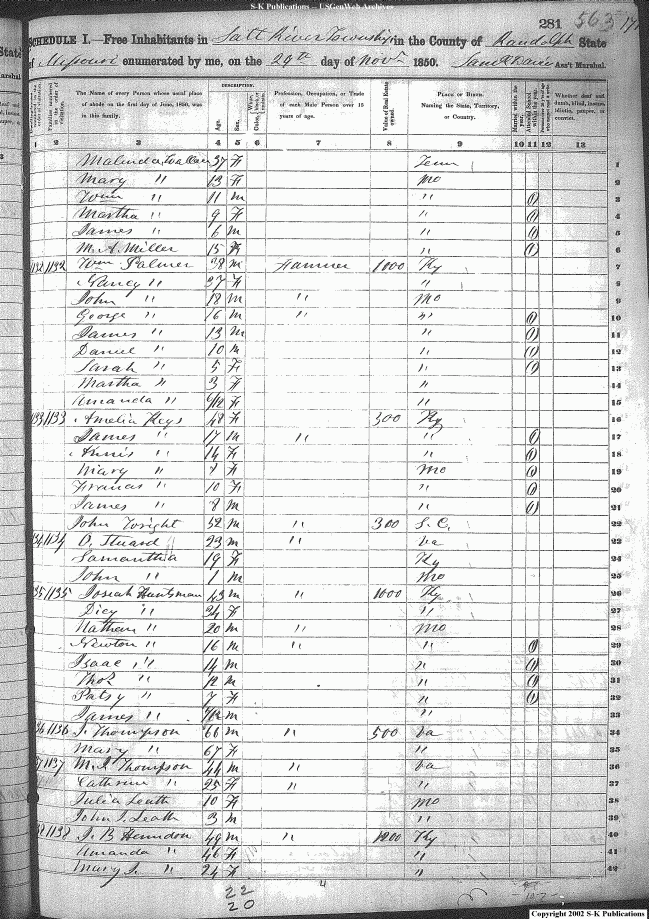 S-K Publications – USGenWeb Archives
281 563
SCHEDULE I.—Free Inhabitants in Salt River Township in the County of Randolph State
of Missouri enumerated by me, on the 29th day of Novr 1850. Ass't Marshal.
DESCRIPTION.
The Name of every Person whose usual place of abode on the first day of June, 1850, was in this family.
Age. Sex.
Profession, Occupation, or Trade of each Male Person over 15 years of age.
Value of Real Estate owned.
PLACE OF BIRTH. Naming the State, Territory, or Country.
Married within the year.
Whether deaf and dumb, blind, insane, idiotic, pauper, or convict.
1 2 3 4 5 6 7 8 9 10 11 12 13
Malinda Wallace 37 F Tenn 1
Mary " 13 F Mo 2
Wm " 11 M " (1) 3
Martha " 9 F " (1) 4
James " 6 M " (1) 5
M. A. Miller 15 F " (1) 6
1132 1132 Wm Palmer 38 M Farmer 1000 Ky 7
Nancy " 37 F " 8
John " 18 M " Mo 9
George " 16 M " " (1) 10
James " 13 M " (1) 11
Daniel " 10 M " (1) 12
Sarah " 5 F " (1) 13
Martha " 3 F " 14
Amanda " /12 F " 15
1133 1133 Amelia Keys 48 F 300 Ky 16
James " 17 M " " (1) 17
Annis " 14 F " (1) 18
Mary " 7 F Mo (1) 19
Francis " 10 F " (1) 20
James " 8 M " (1) 21
John Wright 52 M " 300 S.C. 22
1134 1134 O. Stuard 23 M " Va 23
Samantha 19 F Ky 24
John " 1 M Mo 25
1135 1135 Josiah Huntsman 43 M " 1000 Ky 26
Dicy " 34 F " 27
Nathan " 20 M " Mo 28
Newton " 16 M " " (1) 29
Isaac " 14 M " (1) 30
Thos " 12 M " (1) 31
Patsy " 7 F " (1) 32
James " /12 M " 33
1136 1136 J. Thompson 66 M " 500 Va 34
Mary " 67 F " 35
1137 1137 M. J. Thompson 44 M " Va 36
Cathrine " 25 F " " 37
Julia Leath 10 F Mo 38
John J. Leath 3 M " 39
1138 1138 J. B. Herndon 49 M " 1200 Ky 40
Amanda " 46 F " 41
Mary J. " 24 F " 42
22
20
4
Copyright 2002 S-K Publications